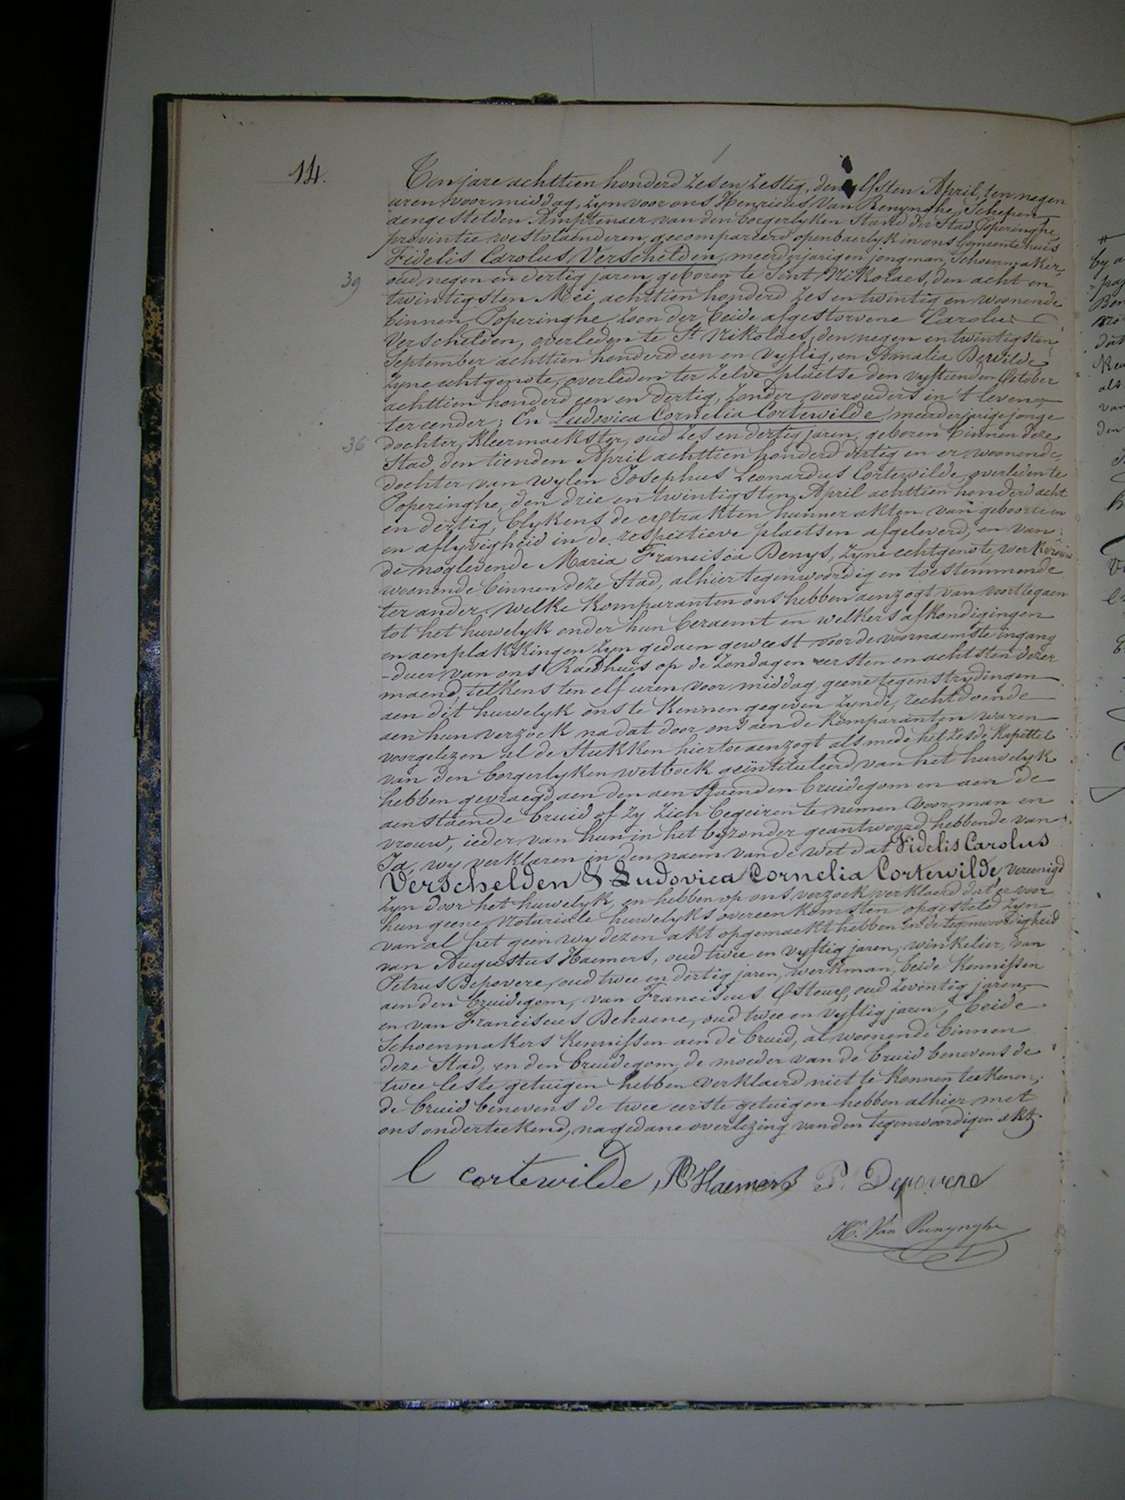 14.
Ten jare achttien honderd zes en zestig, den elfsten April, ten negen
uren voor middag, zyn voor ons Henricus Van Renynghe, Schepen
aengestelden Amptenaer van den borgerlyken Stand der Stad Poperinghe,
provintie westvlaenderen, gecompareerd openbaerlyk in ons Gemeente huis
Fidelis Carolus Verschelden, meerderjarigen jongman, Schoenmaker,
39
oud negen en dertig jaren, geboren te Sint Nikolaes, den acht en
twintigsten Mei, achttien honderd zes en twintig en woonende
binnen Poperinghe, zoon der beide afgestorvene Carolus
Verschelden, overleden te St Nikolaes, den negen en twintigsten
September achttien honderd een en vyftig, en Amalia Dewilde
zyne echtgenote, overleden ter zelve plaetse den vyftienden October
achttien honderd een en dertig, zonder voorouders in 't leven,
ter eender; En Ludovica Cornelia Cortewilde, meerderjarige jonge
36
dochter, kleermaekster, oud zes en dertig jaren, geboren binnen deze
Stad, den tienden April achttien honderd dertig en er woonende
dochter van wylen Josephus Leonardus Cortewilde, overleden te
Poperinghe, den drie en twintigsten April achttien honderd acht
en dertig, blykens de extrakten hunner akten van geboorte en
en aflyvigheid in de respectieve plaetsen afgeleverd, en van
de noglevende Maria Francisca Denys, zyne echtgenote, werkersse
woonende binnen deze Stad, alhier tegenwoordig en toestemmende
ter ander. Welke komparanten ons hebben aenzogt van voorttegaen
tot het huwelyk onder hun beraemt en welkers afkondigingen
en aenplakkingen zyn gedaen geweest voor de voornaemste ingang
-duer van ons Raedhuis op de zondagen eersten en achtsten dezer
maend, telkens ten elf uren voor middag geene tegenstrydingen
aen dit huwelyk ons te kennen gegeven zynde, rechtdoende
aen hun verzoek na dat door ons aen de komparanten waren
voorgelezen al de stukken hiertoe aenzogt als mede het zesde kapittel
van den borgerlyken wetboek geïntituleerd van het huwelyk
hebben gevraegd aen den aenstaenden bruidegom en aen de
aenstaende bruid of zy zich begeiren te nemen voor man en
vrouw, ieder van hun in het byzonder geantwoord hebbende van
Ja, wy verklaren in den naem van de wet dat Fidelis Carolus
Verschelden & Ludovica Cornelia Cortewilde, vereenigd
zyn door het huwelyk, en hebben op ons verzoek verklaerd dat er voor
hun geene notariële huwelyks overeenkomsten opgesteld zyn
van al het geen wy dezen akt opgemaekt hebben in de tegenwoordigheid
van Augustus Haemers, oud twee en vyftig jaren, winkelier, van
Petrus Depovere, oud twee en dertig jaren, werkman, beide kennissen
aen den bruidegom, van Franciscus Osteux, oud zeventig jaren,
en van Franciscus Dehaene, oud twee en vyftig jaren, beide
Schoenmakers kennissen aen de bruid, al woonende binnen
deze Stad, en den bruidegom, de moeder van de bruid benevens de
twee leste getuigen hebben verklaerd niet te konnen teekenen,
de bruid benevens de twee eerste getuigen hebben alhier met
ons onderteekend, na gedane overlezing van den tegenwoordigen akt.
l cortewilde, A Haemers P. Depovere
H. Van Renynghe